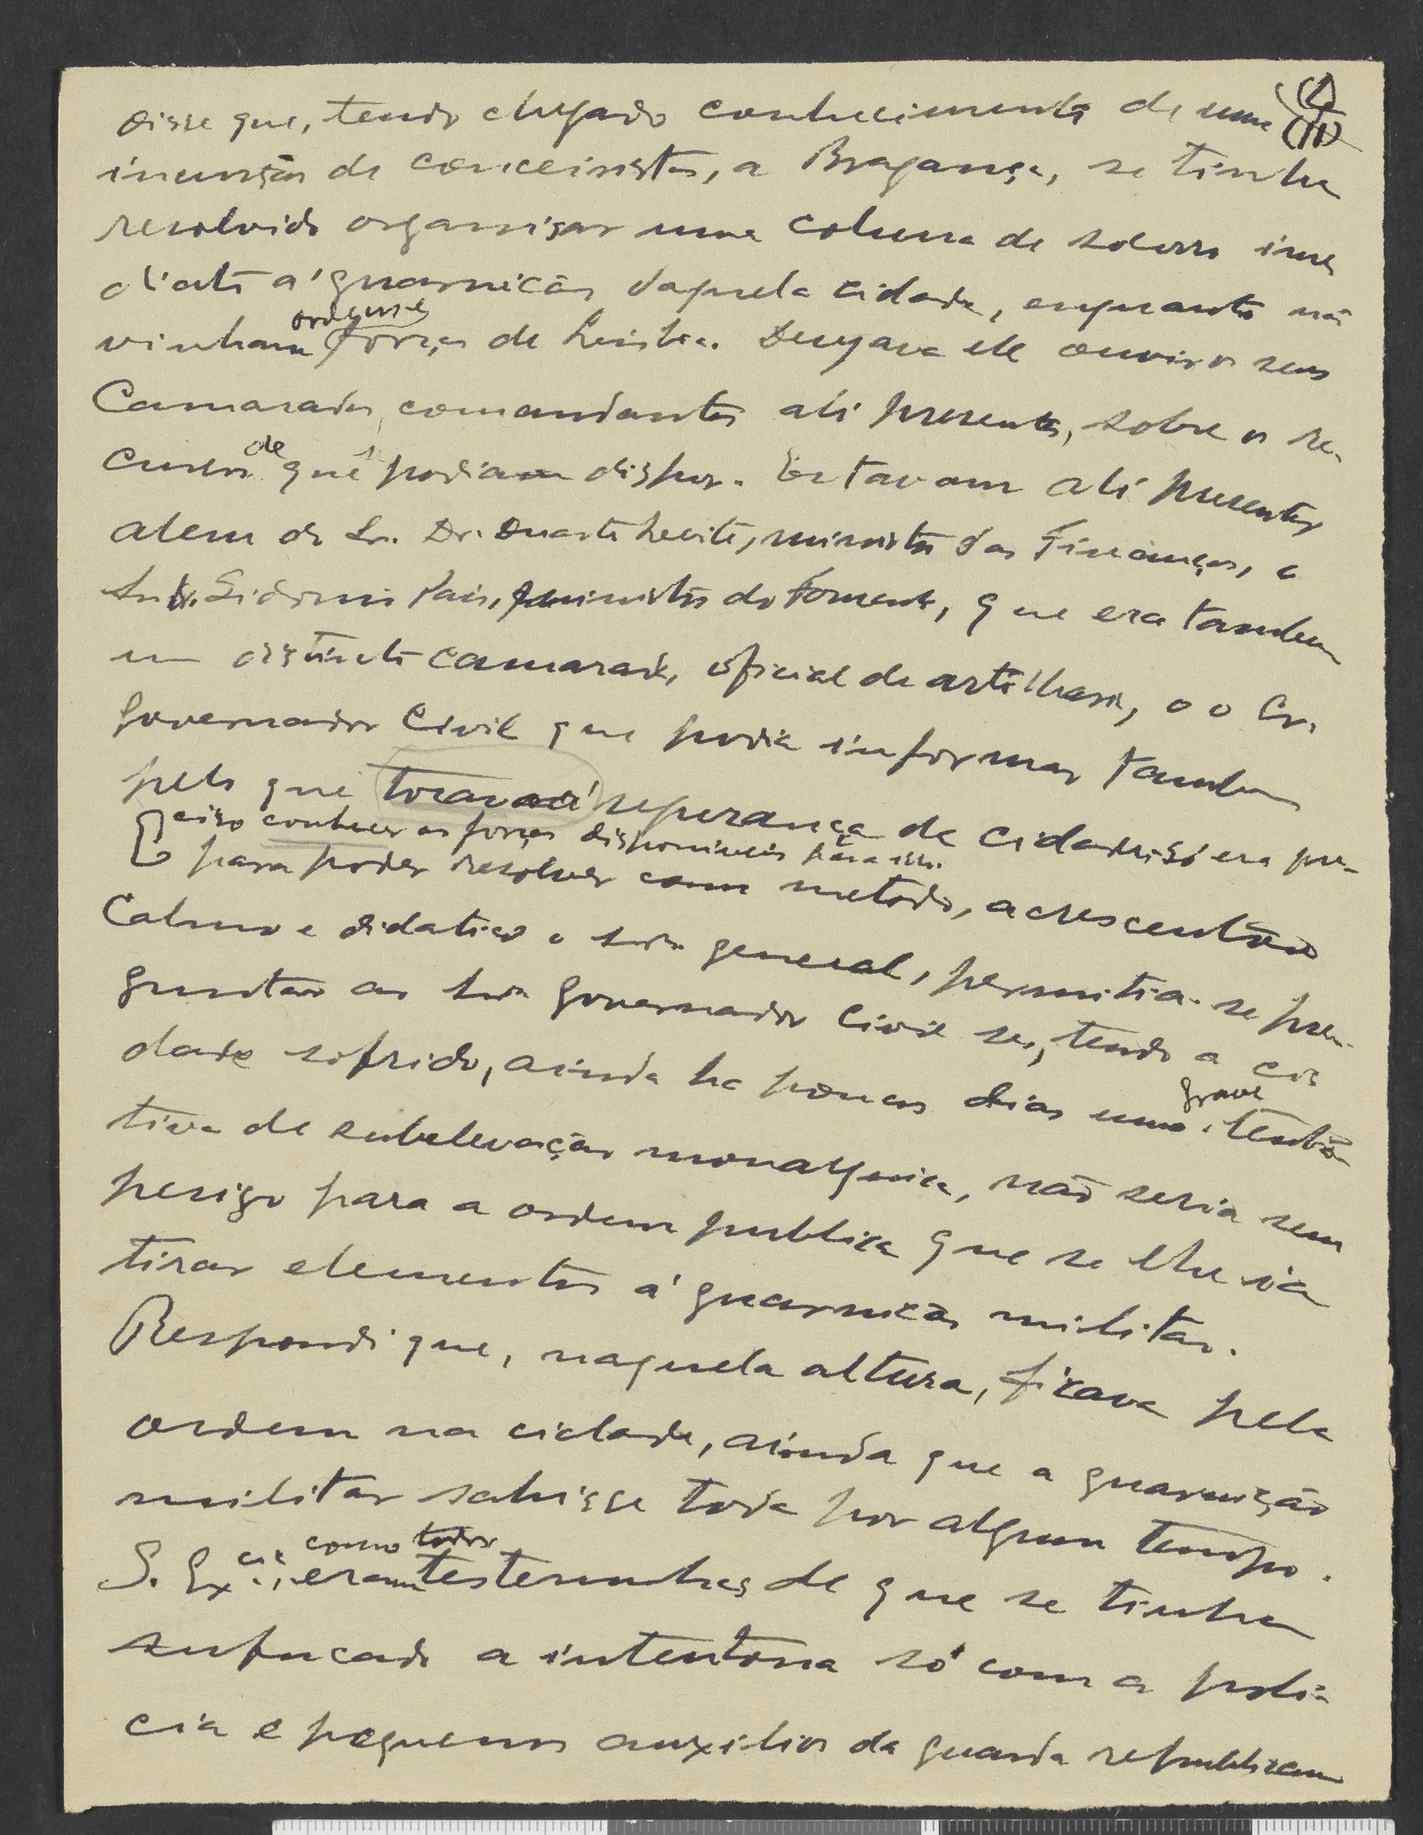 disse que, tendo chegado conhecimento de uma
incursão de couceiristas, a Bragança, se tinha
resolvido organisar uma coluna de socorro ime
diato á guarnicão daquela cidade, enquanto não
vinham forças de Lisboa. Desejava ele ouvir os seus
Camaradas, comandantes ali presentes, sobre os re-
cursos de que podiam dispor. Estavam ali presentes
alem do Sr. Dr. Duarte Leite, ministro das Finanças, o
Snr. Sidonio Pais, ministro do Fomento, que era tambem
um distinto camarada, oficial de artilharia, e o Sr.
Governador Civil que podia informar tambem
pelo que tocava á segurança da cidade; só era pre-
ciso conhecer as forças disponiveis para isso.
para poder resolver com metodo, acrescentou
Calmo e didatico o snr. general, permitia-se per-
guntar ao snr. Governador Civil se, tendo a ci
dade sofrido, ainda ha poucos dias uma grave tenta
tiva de sublevação monarquica, não seria sem
perigo para a ordem publica que se lhe ia
tirar elementos á guarnicão militar.
Respondi que, naquela altura, ficava pela
ordem na cidade, ainda que a guarnição
militar sahisse toda por algum tempo.
S. Ex.cia, como todos eram testemunhas de que se tinha
sufocado a intentona só com a poli-
cia e pequenos auxilios da guarda republicana